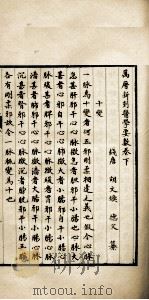 萬曆新刻醫學要數卷下
錢唐 胡文煥 德父 纂
十變
一脈為十變者何五邪剛柔相逢之義也假令心脈
急甚者肝邪干心心脈微急者膽邪干小腸心脈大
甚者心邪自干心心脈微大者小腸邪自干小腸心
脈緩甚者脾邪干心心脈微緩者胃邪干小腸心脈
濇甚者肺邪干心心脈微濇者大腸邪干小腸心脈沉
甚者腎邪干心心脈微沉者膀胱邪干小腸五臟
各有剛柔邪故令一脈輒變為十也
www.mtoou.info